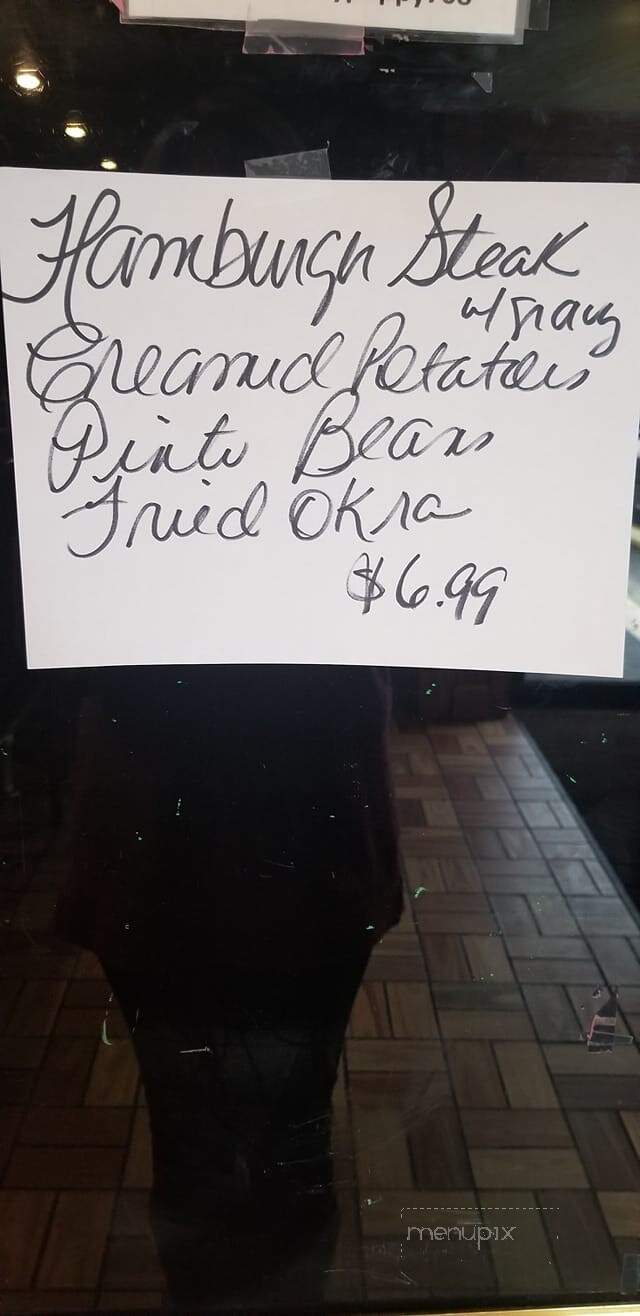 Hamburgr Steak
w/ gravy
Creamed Potatoes
Pinto Beans
Fried Okra
$6.99
menupix